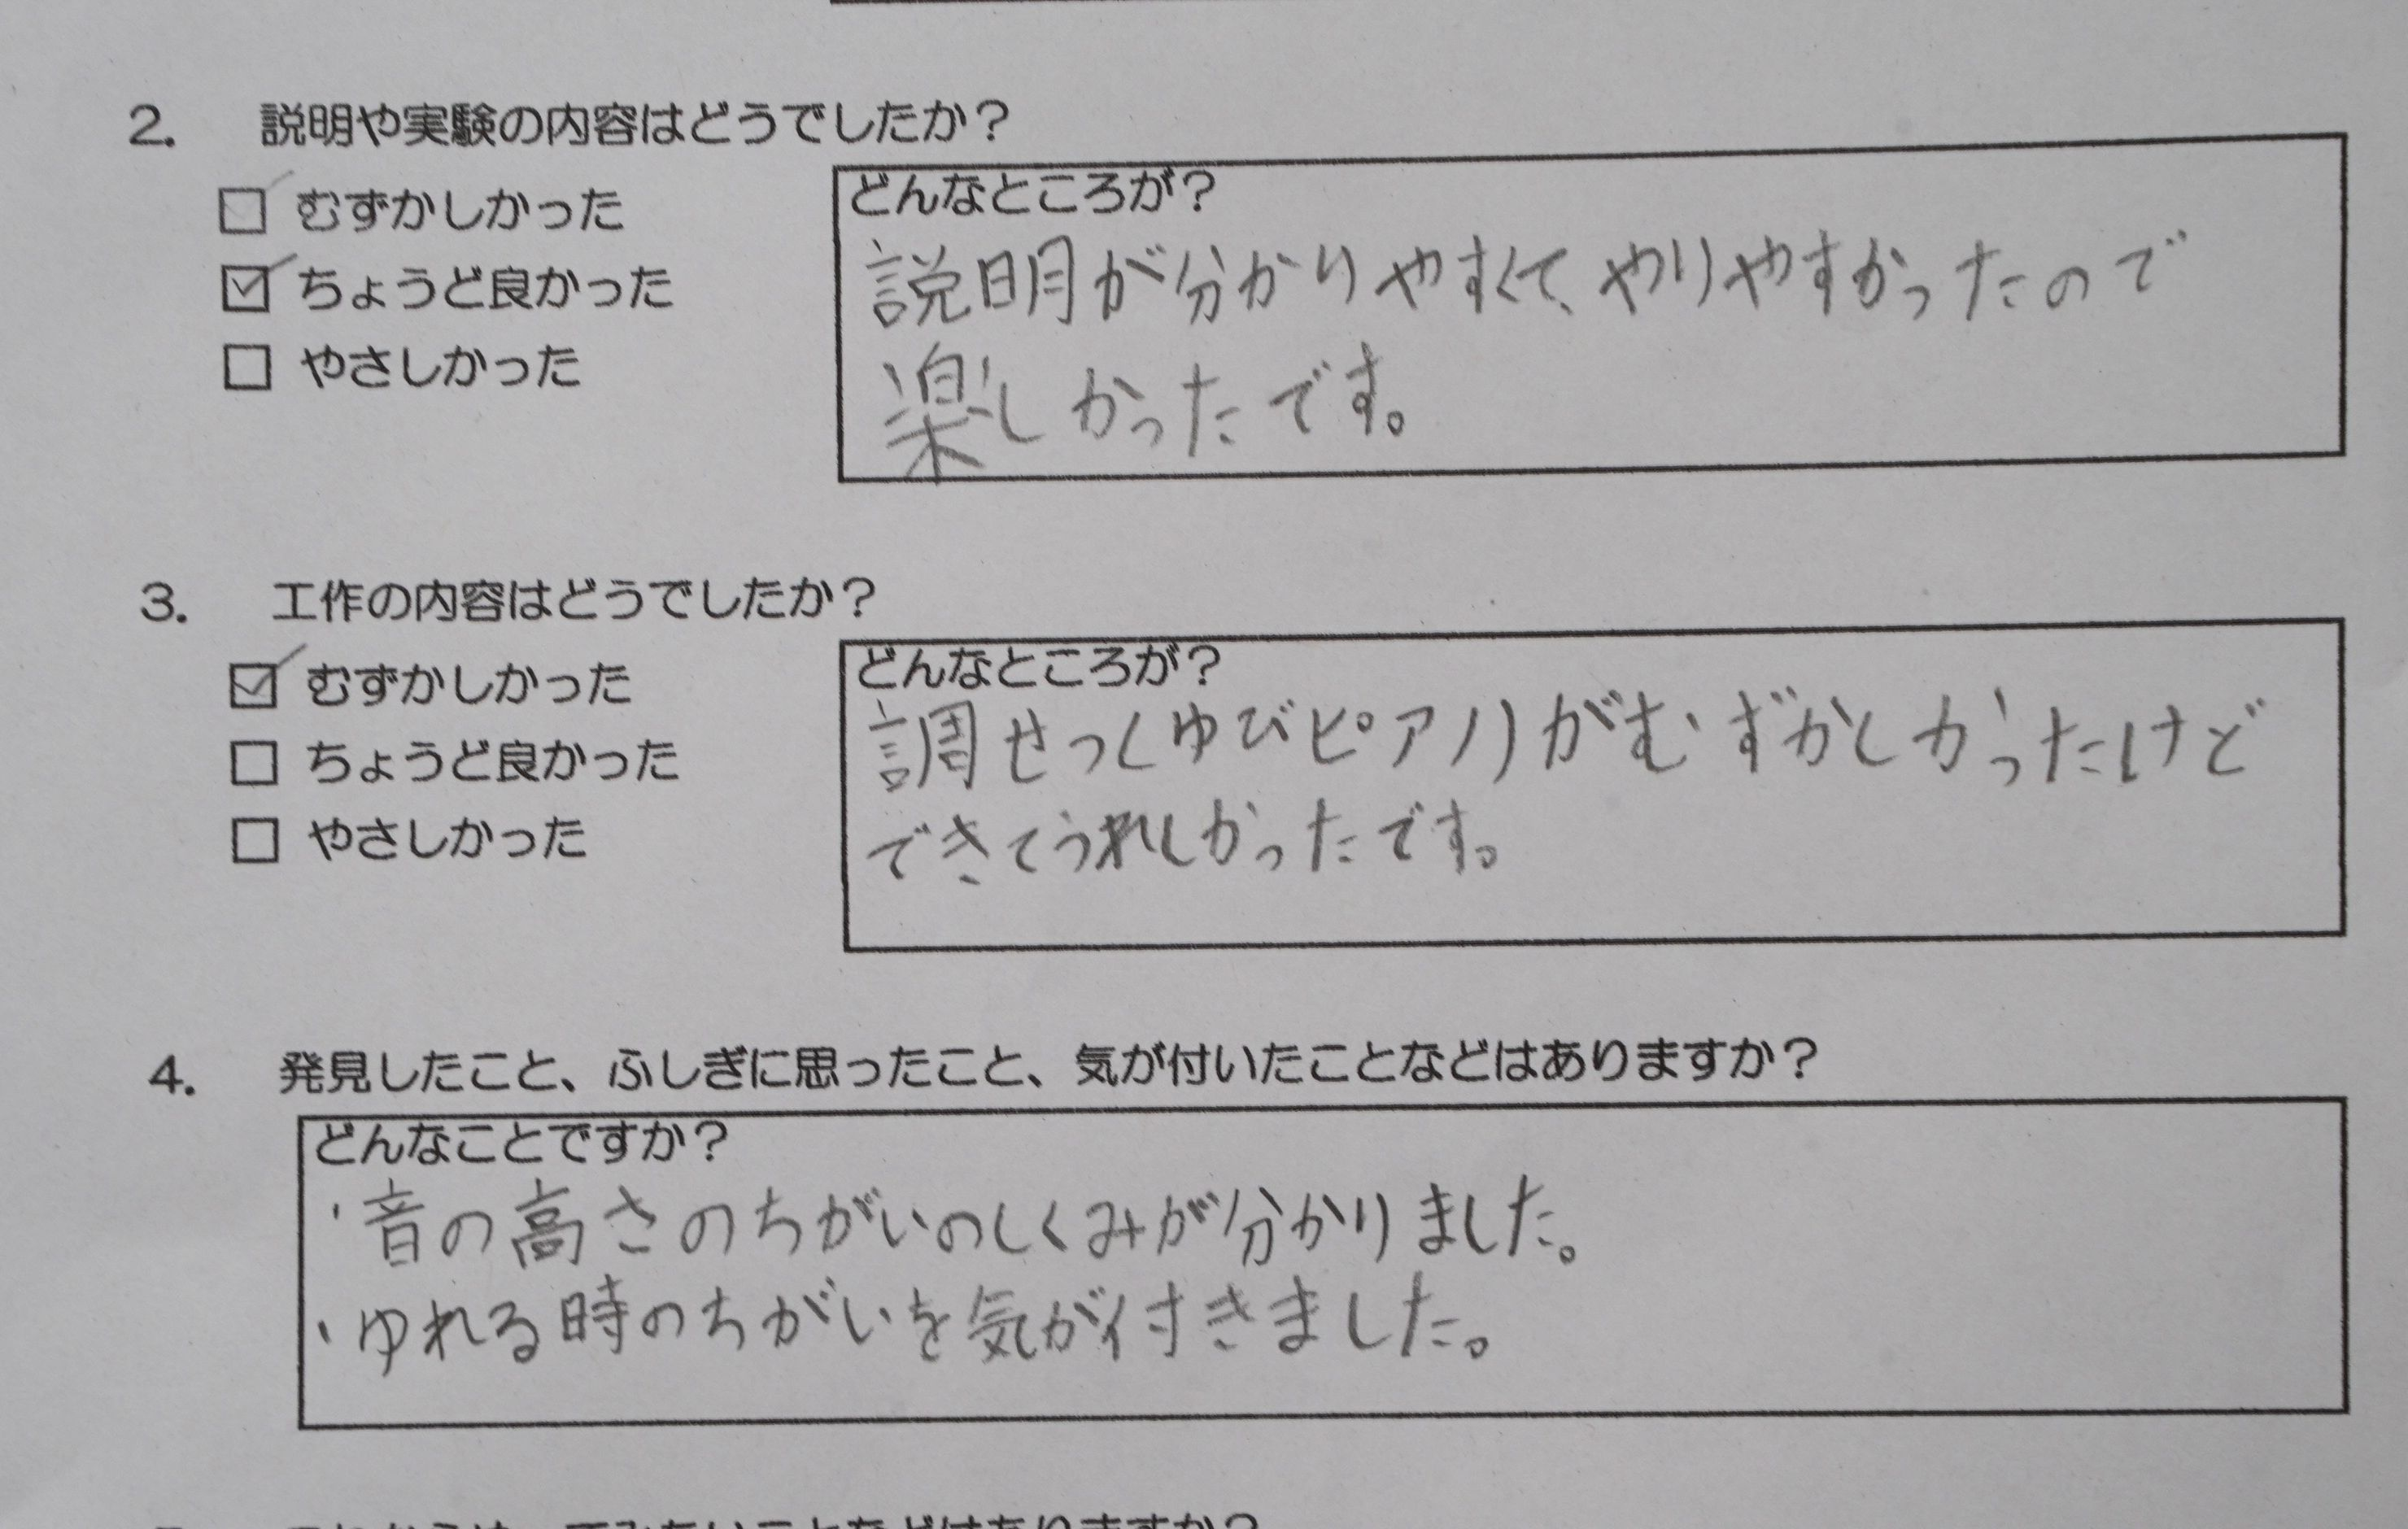 2. 説明や実験の内容はどうでしたか？
むずかしかった
ちょうど良かった
やさしかった
どんなところが？
説明が分かりやすくて、やりやすかったので
楽しかったです。
3. 工作の内容はどうでしたか？
むずかしかった
ちょうど良かった
やさしかった
どんなところが？
調せつくゆびピアノ)がむずかしかったけど
できてうれしかったです。
4. 発見したこと、ふしぎに思ったこと、気が付いたことなどはありますか？
どんなことですか？
・音の高さのちがいのしくみが分かりました。
・ゆれる時のちがいを気が付きました。